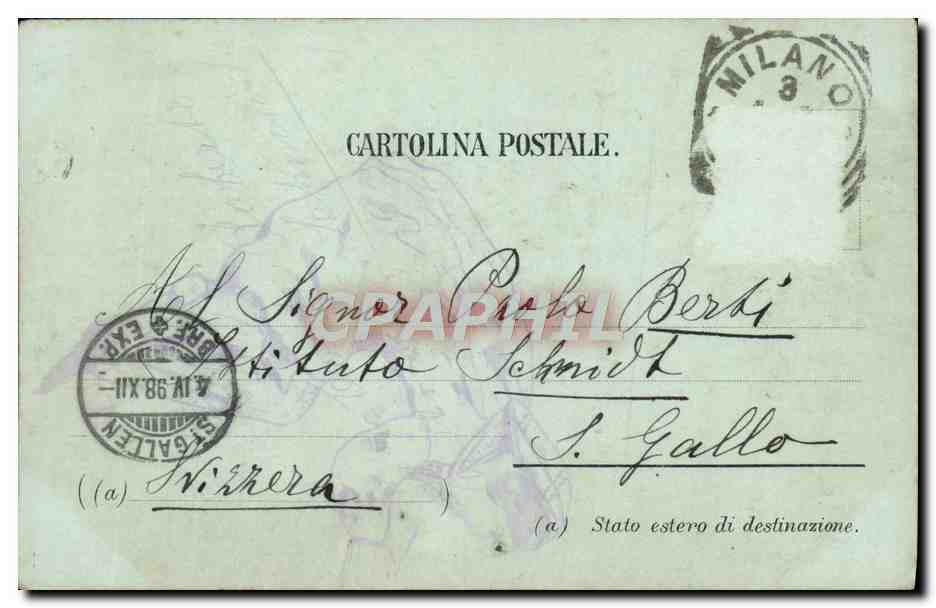 MILANO
3
CARTOLINA POSTALE.
Al Signor Paolo Berti
Istituto Schmidt
S. Gallo
((a) Svizzera )
(a) Stato estero di destinazione.
BRF. EXP.
4. IV. 98. XII
ST. GALLEN
GRAPHIL